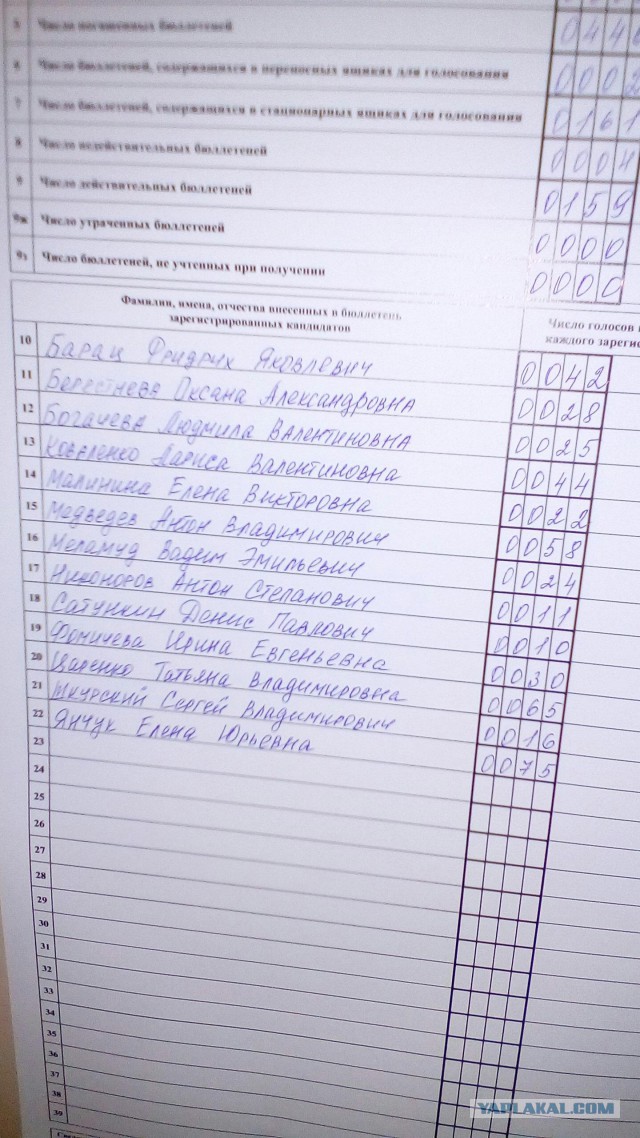 5 Число погашенных бюллетеней 044
6 Число бюллетеней, содержащихся в переносных ящиках для голосования 0002
7 Число бюллетеней, содержащихся в стационарных ящиках для голосования 0161
8 Число недействительных бюллетеней 0004
9 Число действительных бюллетеней 0159
9ж Число утраченных бюллетеней 0000
9з Число бюллетеней, не учтенных при получении 0000
Фамилии, имена, отчества внесенных в бюллетень
зарегистрированных кандидатов
Число голосов
каждого зарегис
10 Барац Фридрих Яковлевич 0042
11 Берестнева Оксана Александровна 0028
12 Богачева Людмила Валентиновна 0025
13 Коваленко Лариса Валентиновна 0044
14 Малинина Елена Викторовна 0022
15 Медведев Антон Владимирович 0058
16 Меламуд Вадим Эмильевич 0024
17 Никоноров Антон Степанович 0011
18 Сатункин Денис Павлович 0010
19 Фомичева Ирина Евгеньевна 0030
20 Царенко Татьяна Владимировна 0065
21 Шкурский Сергей Владимирович 0016
22 Янчук Елена Юрьевна 0075
23
24
25
26
27
28
29
30
31
32
33
34
35
36
37
38
39
YAPLAKAL.COM